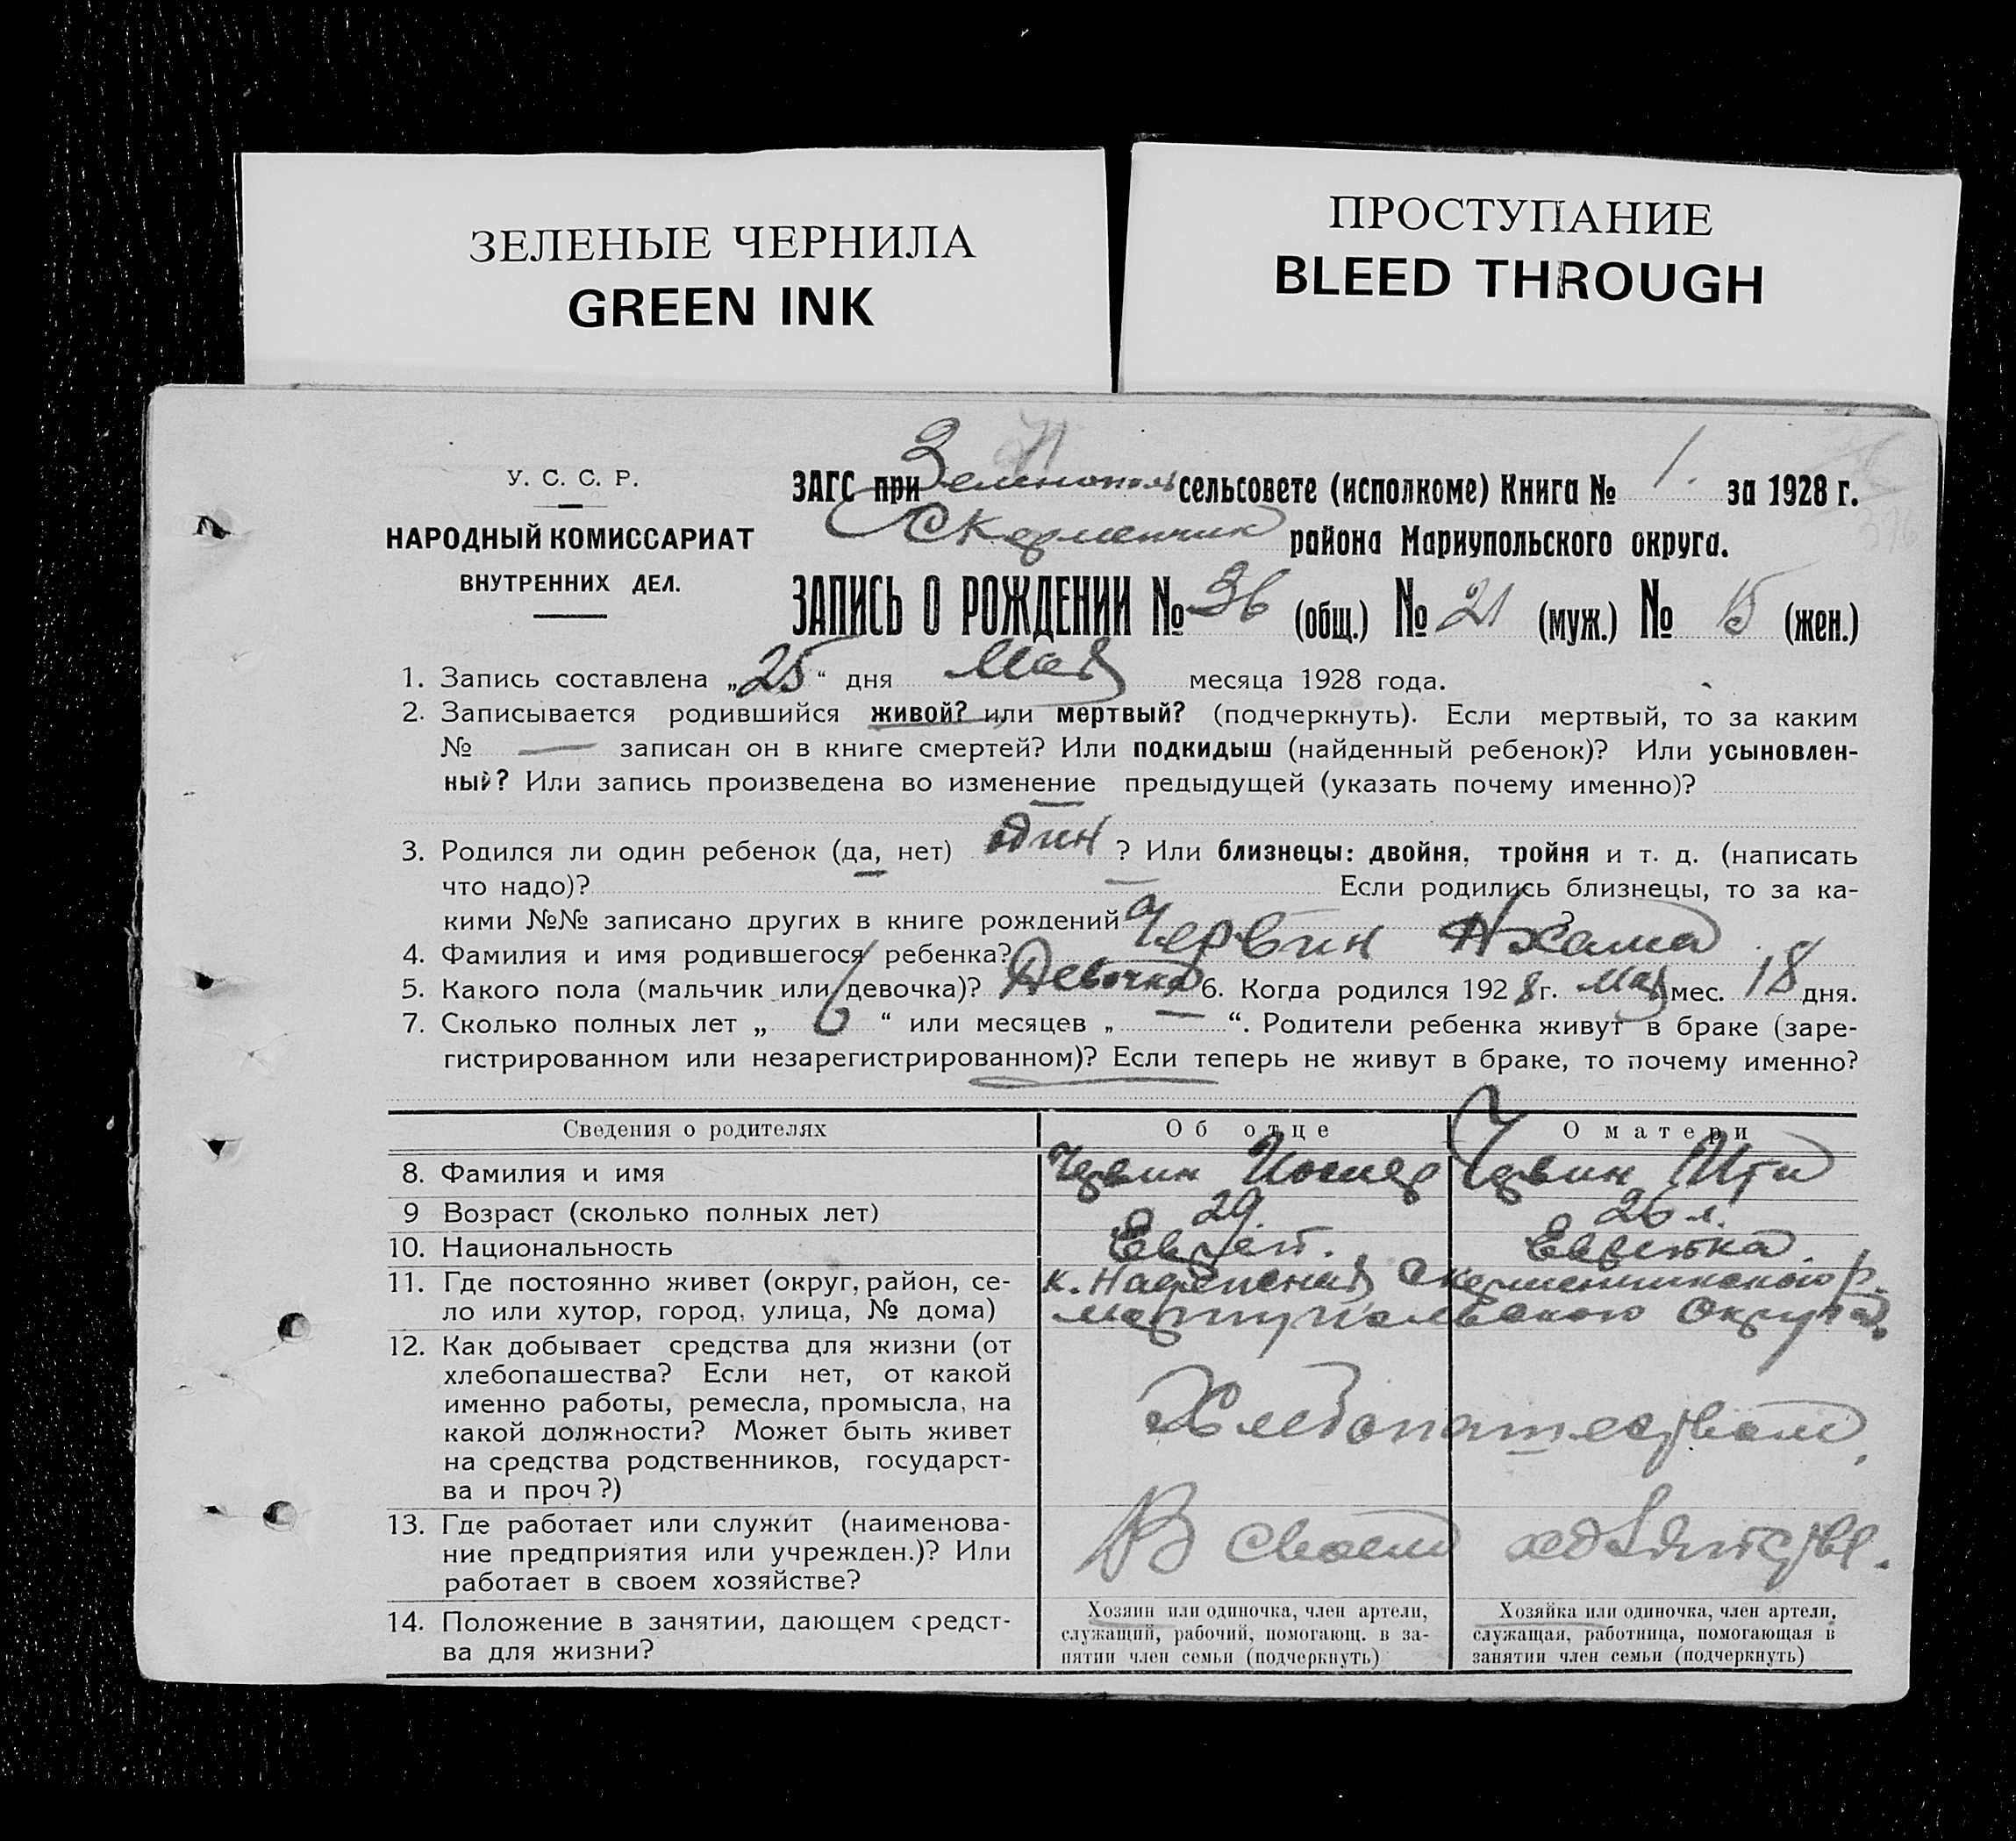 ЗЕЛЕНЫЕ ЧЕРНИЛА
GREEN INK
ПРОСТУПАНИЕ
BLEED THROUGH
У. С. С. Р.
НАРОДНЫЙ КОМИССАРИАТ
ВНУТРЕННИХ ДЕЛ.
ЗАГС при Зеленополь сельсовете (исполкоме) Книга № 1. за 1928 г.
района Мариупольского округа.
ЗАПИСЬ О РОЖДЕНИИ № 36 (общ.) № 21 (муж.) № 15 (жен.)
1. Запись составлена „25“ дня Мая месяца 1928 года.
2. Записывается родившийся живой? или мертвый? (подчеркнуть). Если мертвый, то за каким
№ — записан он в книге смертей? Или подкидыш (найденный ребенок)? Или усыновлен-
ный? Или запись произведена во изменение предыдущей (указать почему именно)?
3. Родился ли один ребенок (да, нет) один ? Или близнецы: двойня, тройня и т. д. (написать
что надо)? — Если родились близнецы, то за ка-
кими №№ записано других в книге рождений ?
4. Фамилия и имя родившегося ребенка? Червин
5. Какого пола (мальчик или девочка)? Девочка 6. Когда родился 1928 г. Мая мес. 18 дня.
7. Сколько полных лет „ 6 “ или месяцев „ — “. Родители ребенка живут в браке (заре-
гистрированном или незарегистрированном)? Если теперь не живут в браке, то почему именно?
Сведения о родителях Об отце О матери
8. Фамилия и имя Червин Иосиф Червин
9 Возраст (сколько полных лет) 29. 26 л.
10. Национальность Еврей. Еврейка.
11. Где постоянно живет (округ, район, се- к. Надежная Скерменчикского р.
ло или хутор, город, улица, № дома) Мариупольского Округа
12. Как добывает средства для жизни (от
хлебопашества? Если нет, от какой
именно работы, ремесла, промысла, на
какой должности? Может быть живет
на средства родственников, государст-
ва и проч?)
Хлебопашеством
13. Где работает или служит (наименова-
ние предприятия или учрежден.)? Или
работает в своем хозяйстве?
В своем хозяйстве.
14. Положение в занятии, дающем средст-
ва для жизни?
Хозяин или одиночка, член артели,
служащий, рабочий, помогающ. в за-
нятии член семьи (подчеркнуть)
Хозяйка или одиночка, член артели,
служащая, работница, помогающая в
занятии член семьи (подчеркнуть)